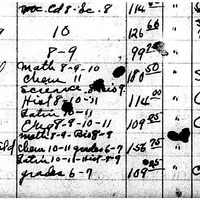 Voc. Cd 8-Sc. 8 114
10 126 66
8-9 99
Math 8-9-10
Chem 11 180 50
Science Bio 9
Hist 8-10-11 114 00
Latin 10-11
Eng 8-9-10-11 109
math 8-9-Bio 8-9
Chem 10-11 grades 6-7 156 75
Latin 10-11-Hist 8-9
grades 6-7 109